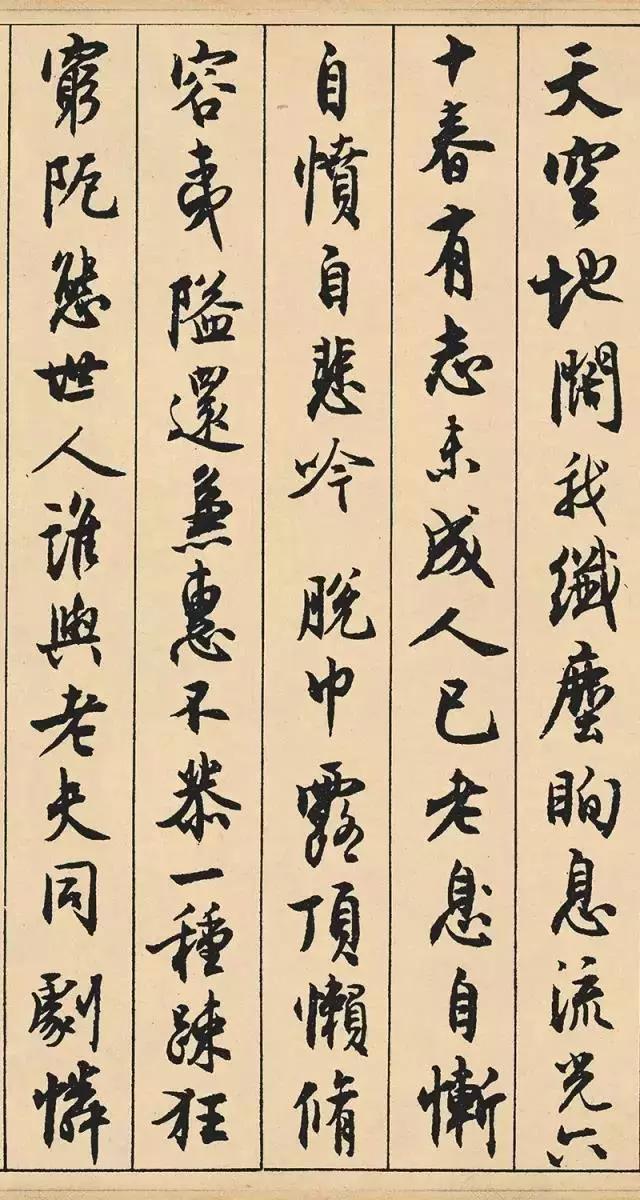 天空地闊我纖塵眴息流光六
十春有志未成人已老自慚
自憤自悲吟 脫巾露頂懶脩
容夷隘還兼惠不恭一種踈狂
窮阨態世人誰與老夫同 劇憐